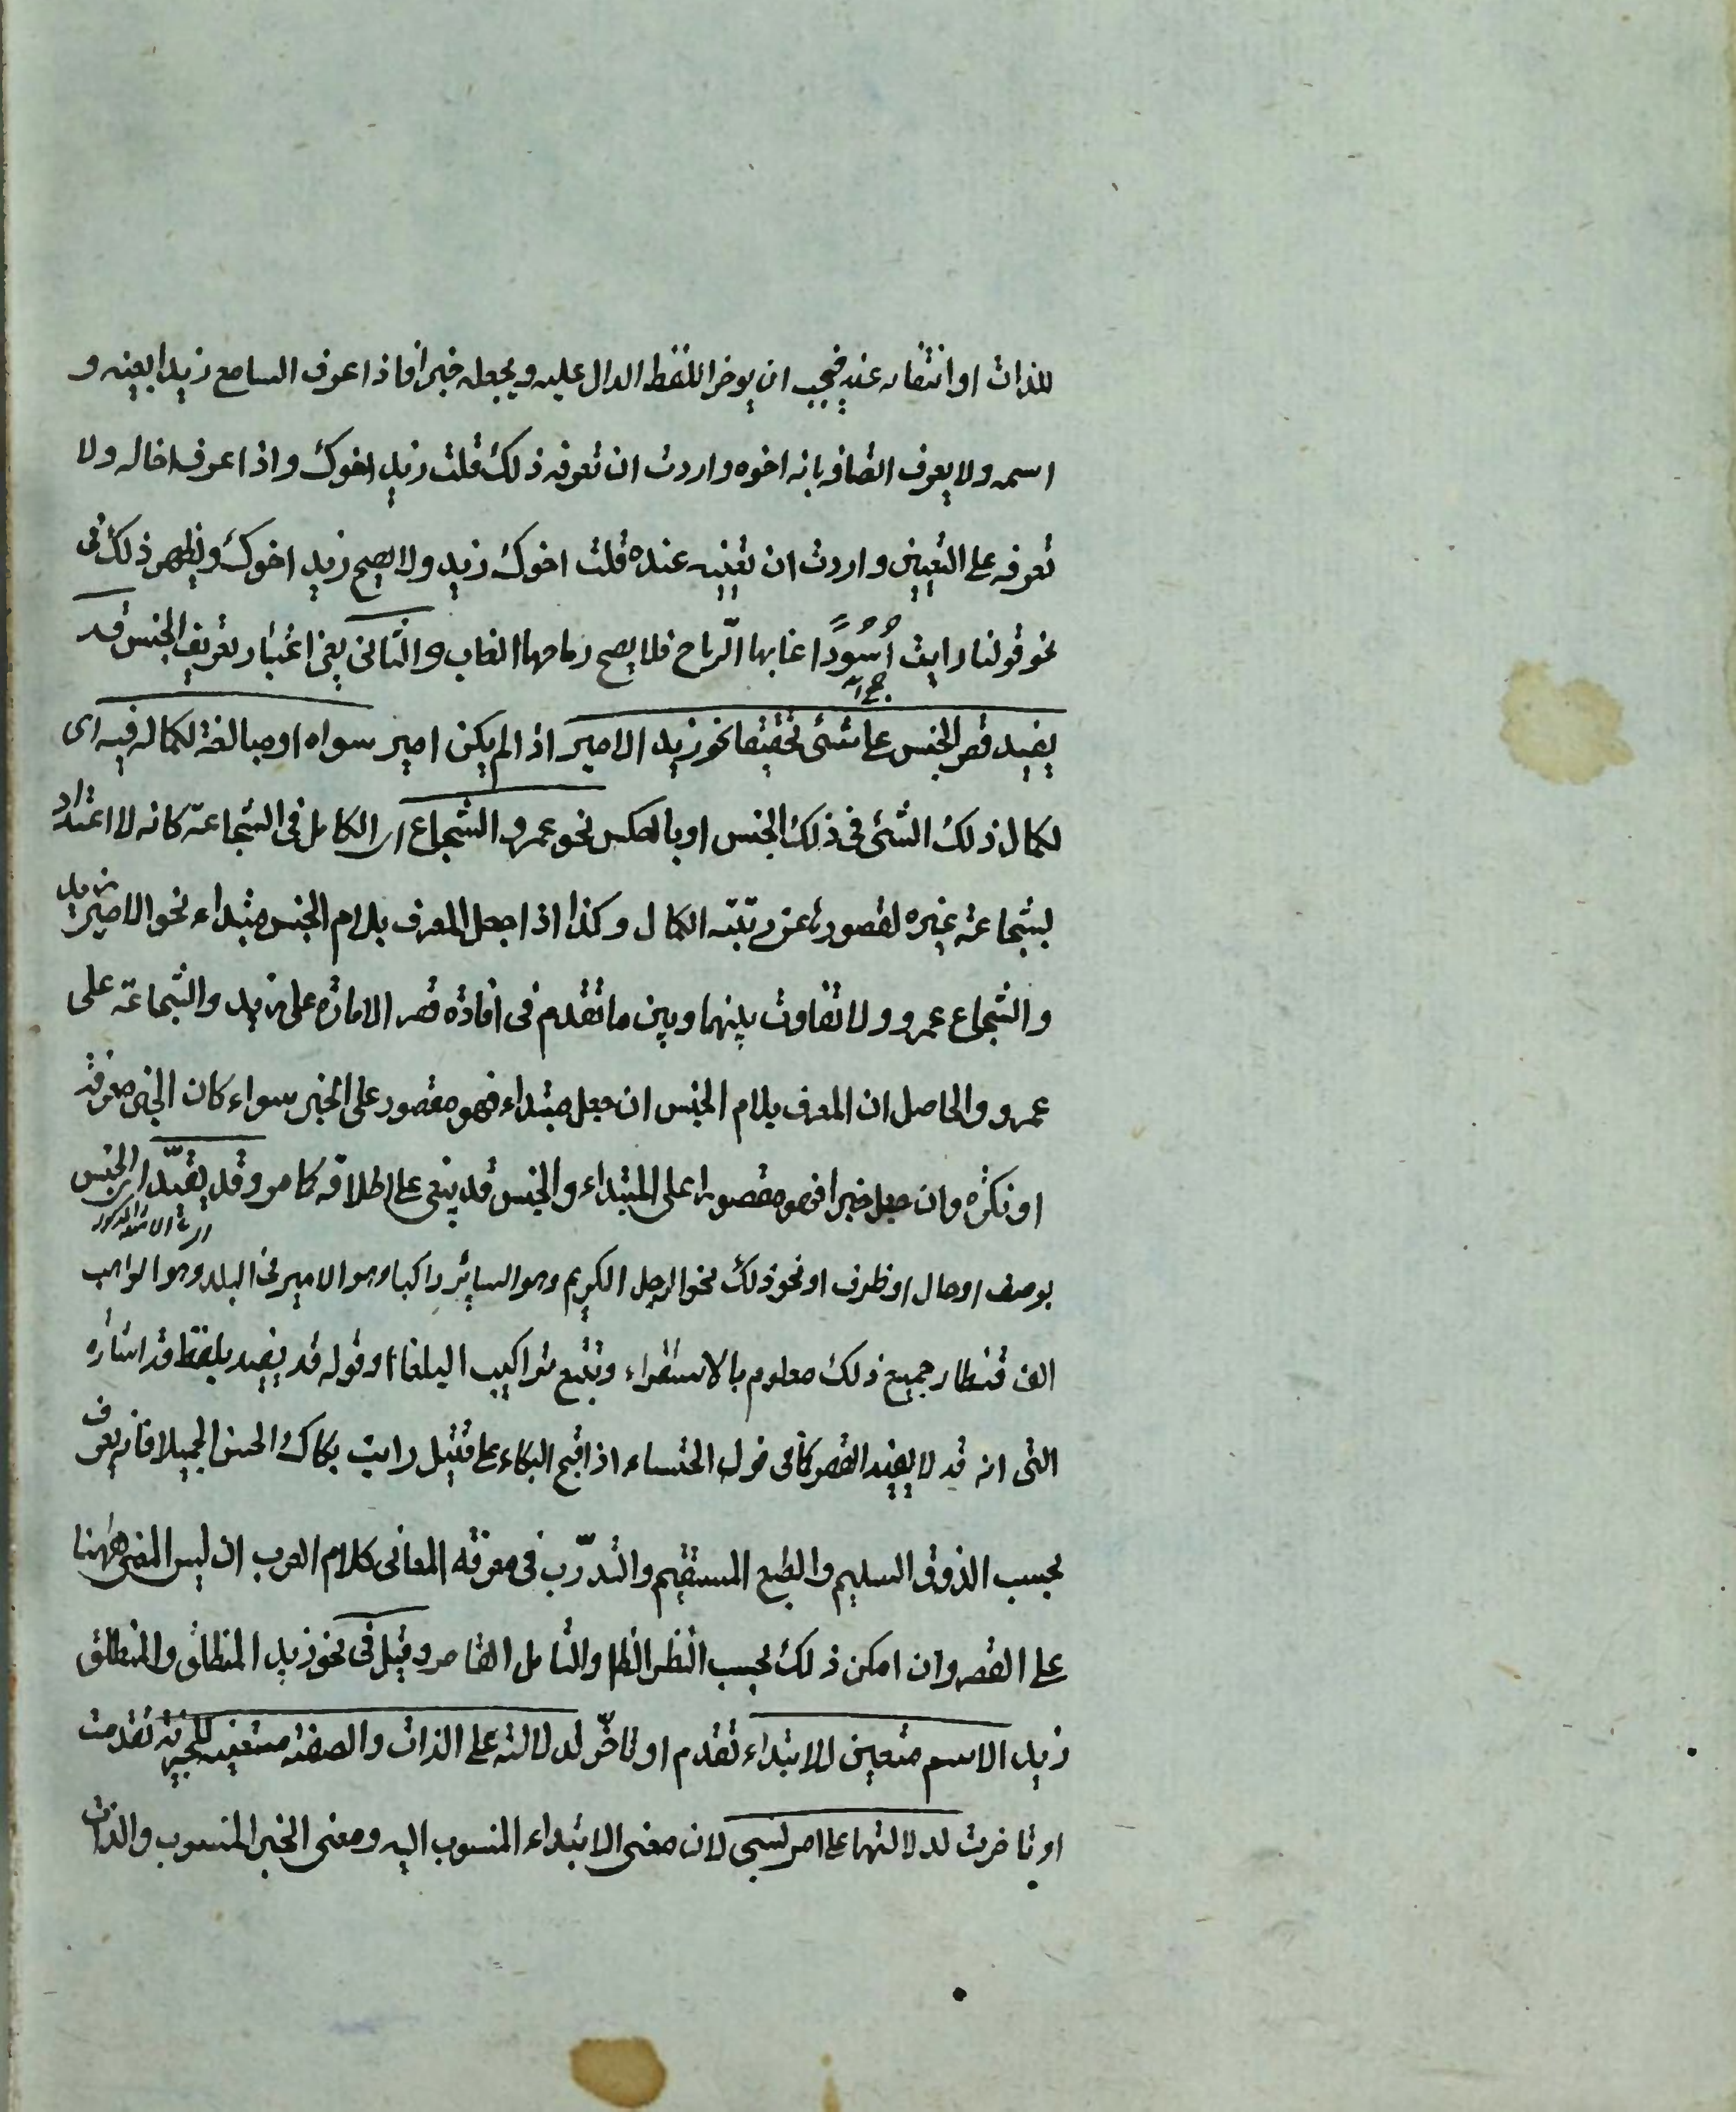 للذات او انتفاء عنه فيجب ان يوخر اللفظ الدال عليه ويجعله خبرا فاذا عرف السامع زيدا بعينه و
اسمه ولا يعرف اتصافه بانه اخوه واردت ان تعرفه ذلك قلت زيد اخوك واذا عرف اخا له ولا
تعرفه على التعيين واردت ان تعينه عنده قلت اخوك زيد ولا يصح زيد اخوك ويظهر ذلك فى
نحو قولنا رايت أُسُودًا غابها الرّماح فلا يصح رماحها الغاب والثانى يعنى اعتبار تعريف الجنس قد
يفيد قصر الجنس على شئى تحقيقا نحو زيد الامير اذا لم يكن امير سواه او مبالغة لكماله فيه اى
لكمال ذلك الشئى فى ذلك الجنس او بالعكس نحو عمرو الشجاع اى الكامل فى الشجاعة كانه لا اعتداد
لشجاعة غيره لقصورها عن رتبته الكمال وكذا اذا جعل المعرف بلام الجنس مبتداء نحو الامير زيد
والشجاع عمرو ولا تفاوت بينهما وبين ما تقدم فى افادة قصر الامارة على زيد والشجاعة على
عمرو والحاصل ان المعرف بلام الجنس ان جعل مبتداء فهو مقصور على الخبر سواء كان الخبر معرفة
او نكرة وان جعل خبرا فهو مقصورا على المبتداء والجنس قد يبقى على اطلاقه كما مر وقد يقيّد اى الجنس
بوصف او حال او ظرف او نحو ذلك نحو الرجل الكريم وهو السائر راكبا وهو الامير فى البلد وهو الواهب
الف قنطار جميع ذلك معلوم بالاستقراء وتتبع تراكيب البلغاء وقوله قد يفيد بلفظ قد اشارة
التى انه قد لا يفيد القصر كما فى قول الخنساء اذا قبح البكاء على قتيل رايت بكاك الحسن الجميلا فانه يعرف
بحسب الذوق السليم والطبع المستقيم والتدرّب فى معرفة المعانى كلام العرب ان ليس المعنى ههنا
على القصر وان امكن ذلك بحسب النظر الظا والتامل القاصر وقيل فى نحو زيد المنطلق والمنطلق
زيد الاسم متعين للابتداء تقدم او تاخّر لدلالته على الذات والصفة متعينه للخبرية تقدمت
او تاخرت لدلالتها على امر نسبى لان معنى الابتداء المنسوب اليه ومعنى الخبر المنسوب والذات